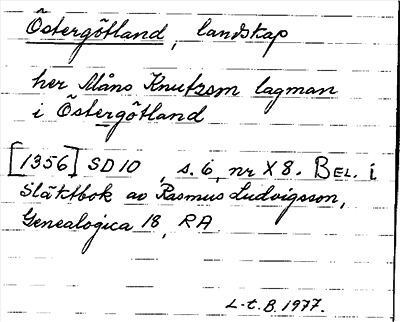 Östergötland, landskap
her Måns Knutzsm lagman
i Östergötland
[1356] SD 10, s. 6, nr X 8. BEL. i
Släktbok av Rasmus Ludvigsson,
Genealogica 18, RA
L-t. B. 1977.